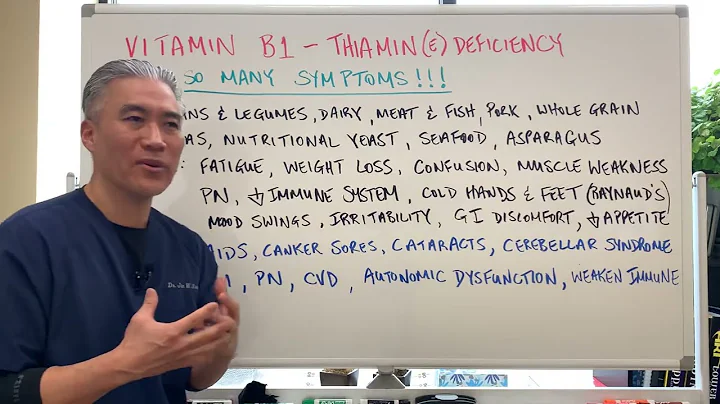 VITAMIN B1 - THIAMIN(E) DEFICIENCY
SO MANY SYMPTOMS!!!
NS & LEGUMES, DAIRY, MEAT & FISH, PORK, WHOLE GRAIN
AS, NUTRITIONAL YEAST, SEAFOOD, ASPARAGUS
: FATIGUE, WEIGHT LOSS, CONFUSION, MUSCLE WEAKNESS
PN, ↓ IMMUNE SYSTEM, COLD HANDS & FEET (RAYNAUD'S)
MOOD SWINGS, IRRITABILITY, GI DISCOMFORT, ↓ APPETITE
AIDS, CANKER SORES, CATARACTS, CEREBELLAR SYNDROME
, PN, CVD, AUTONOMIC DYSFUNCTION, WEAKEN IMMUNE
Dr.